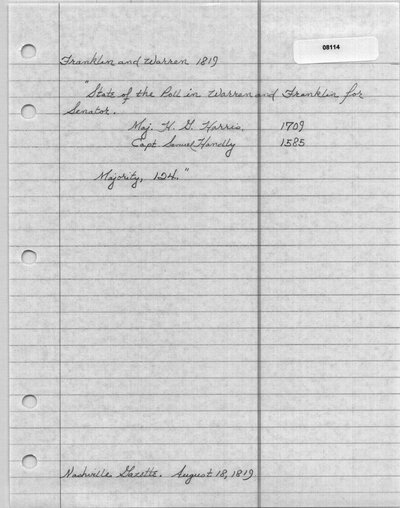 08114
Franklin and Warren 1819
"State of the Poll in Warren and Franklin for
Senator.
Maj. H. G. Harris, 1709
Capt Samuel Handly 1585
Majority, 124."
Nashville Gazette. August 18, 1819